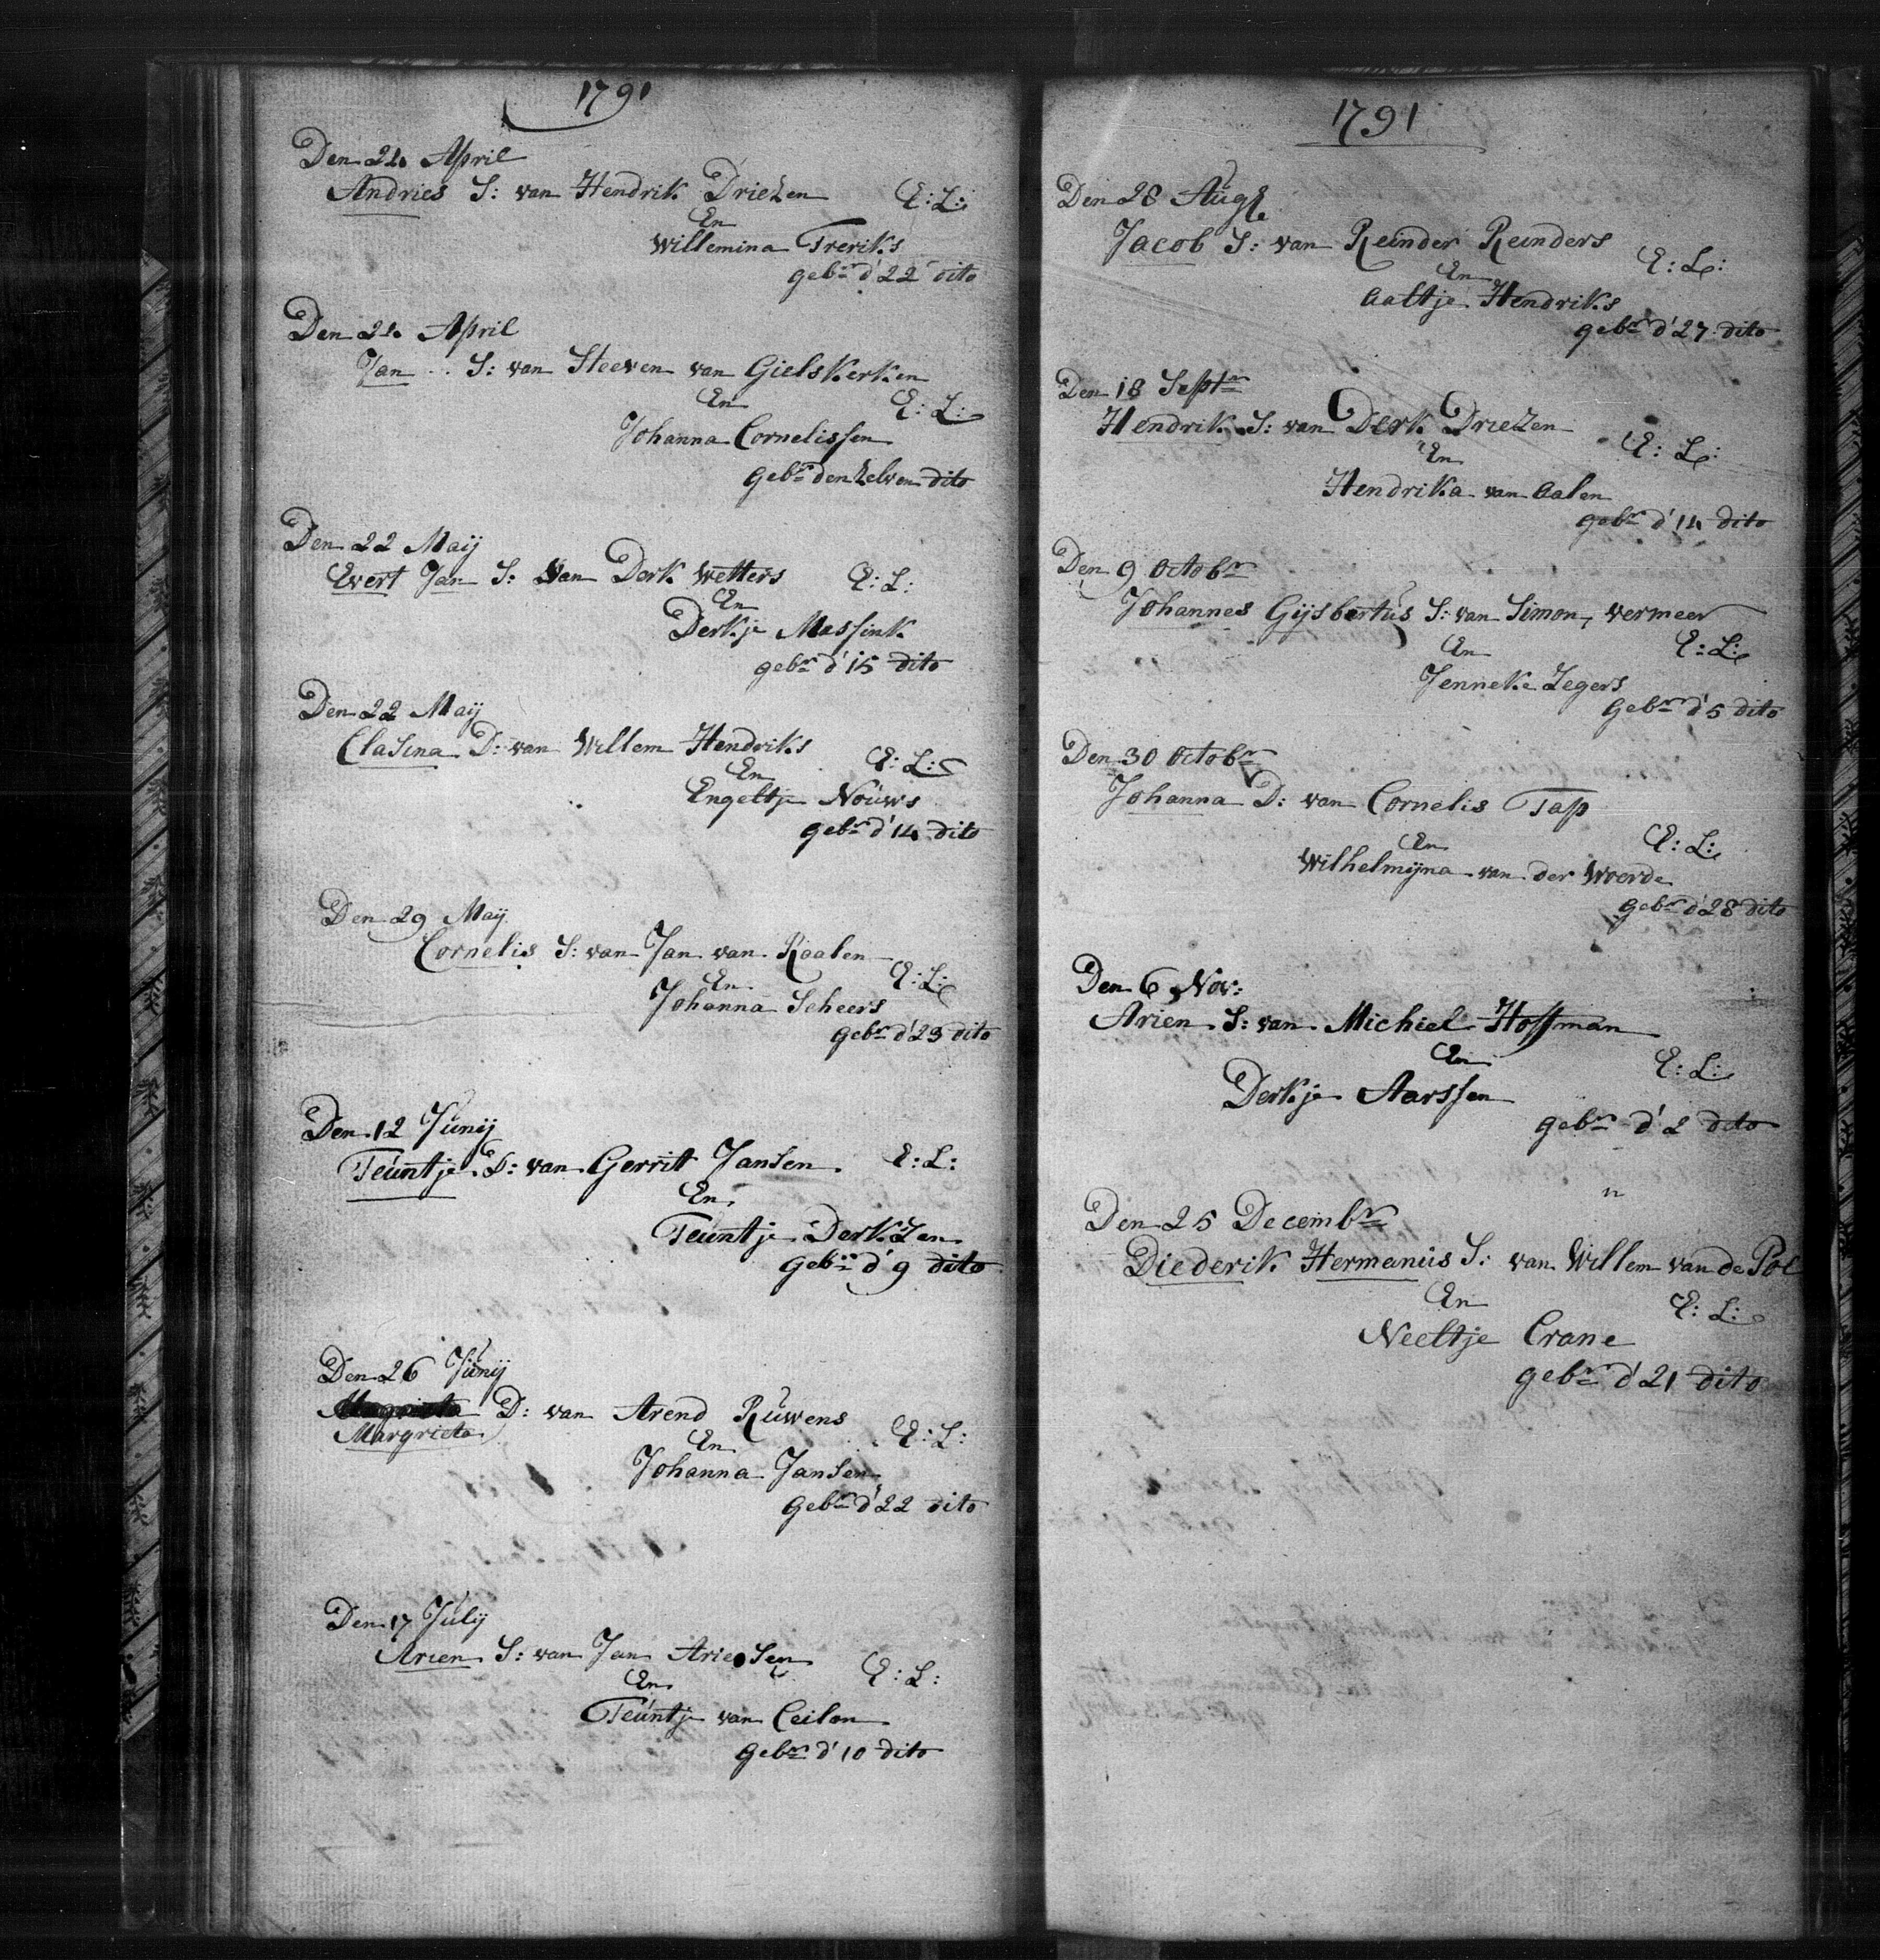 1791
Den 24 April
Andries S: van Hendrik Driezen E: L:
En
Willemina Freriks
gebr d' 22 dito
Den 24 April
Jan S: van Steeven van Gielskerken
En E: L:
Johanna Cornelissen
gebr den zelven dito
Den 22 Maij
Evert Jan S: van Derk Wetters E: L:
En
Derkje Massink
gebr d' 15 dito
Den 22 Maij
Clasina D: van Willem Hendriks E: L:
En
Engeltje Nouws
gebr d' 14 dito
Den 29 Maij
Cornelis S: van Jan van Raalen
En E: L:
Johanna Scheers
gebr d' 23 dito
Den 12 Junij
Teuntje D: van Gerrit Jansen E: L:
En
Teuntje Derkzen
gebr d' 9 dito
Den 26 Junij
D: van Arend Ruwens E: L:
Margrieta En
Johanna Jansen
gebr d' 22 dito
Den 17 Julij
Arien S: van Jan Ariesen E: L:
En
Teuntje van Ceilen
gebr d' 10 dito
1791
Den 28 Augt
Jacob S: van Reinder Reinders E: L:
En
Aaltje Hendriks
gebr d' 27 dito
Den 18 Septr
Hendrik S: van Derk Driezen E: L:
En
Hendrika van Aalen
gebr d' 14 dito
Den 9 Octobr
Johannes Gijsbertus S: van Simon vermeer
En E: L:
Jenneke Zegers
gebr d' 5 dito
Den 30 Octobr
Johanna D: van Cornelis Tap
En E: L:
Wilhelmijna van der Woerde
gebr d' 28 dito
Den 6 Nov:
Arien S: van Michiel Hoffman
En E: L:
Derkje Aarssen
gebr d' 2 dito
Den 25 Decembr
Diederik Hermanus S: van Willem van de Pol
En E: L:
Neeltje Crane
gebr d' 21 dito